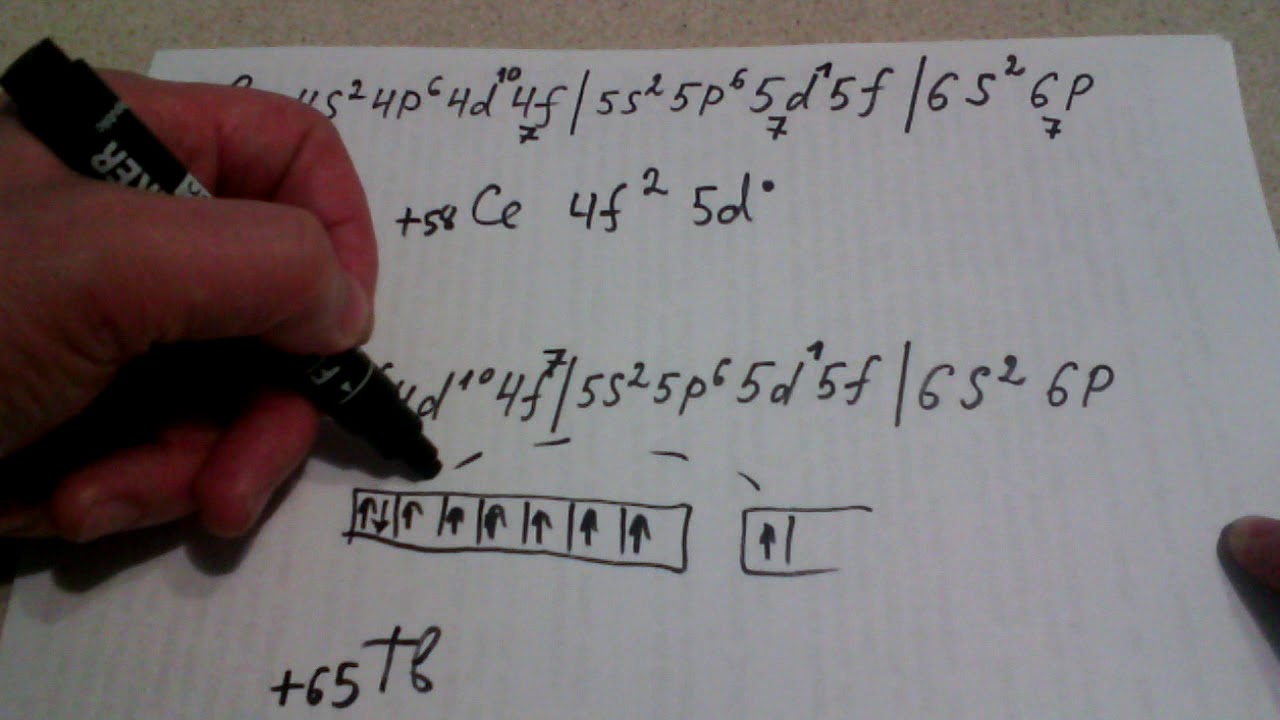 4s² 4p⁶ 4d¹⁰ 4f | 5s² 5p⁶ 5d¹ 5f | 6s² 6p
7 7 7
+58 Ce 4f² 5d°
4d¹⁰ 4f⁷ | 5s² 5p⁶ 5d¹ 5f | 6s² 6p
↑↓ | ↑ | ↑ | ↑ | ↑ | ↑ | ↑ ↑ |
+65 Tb